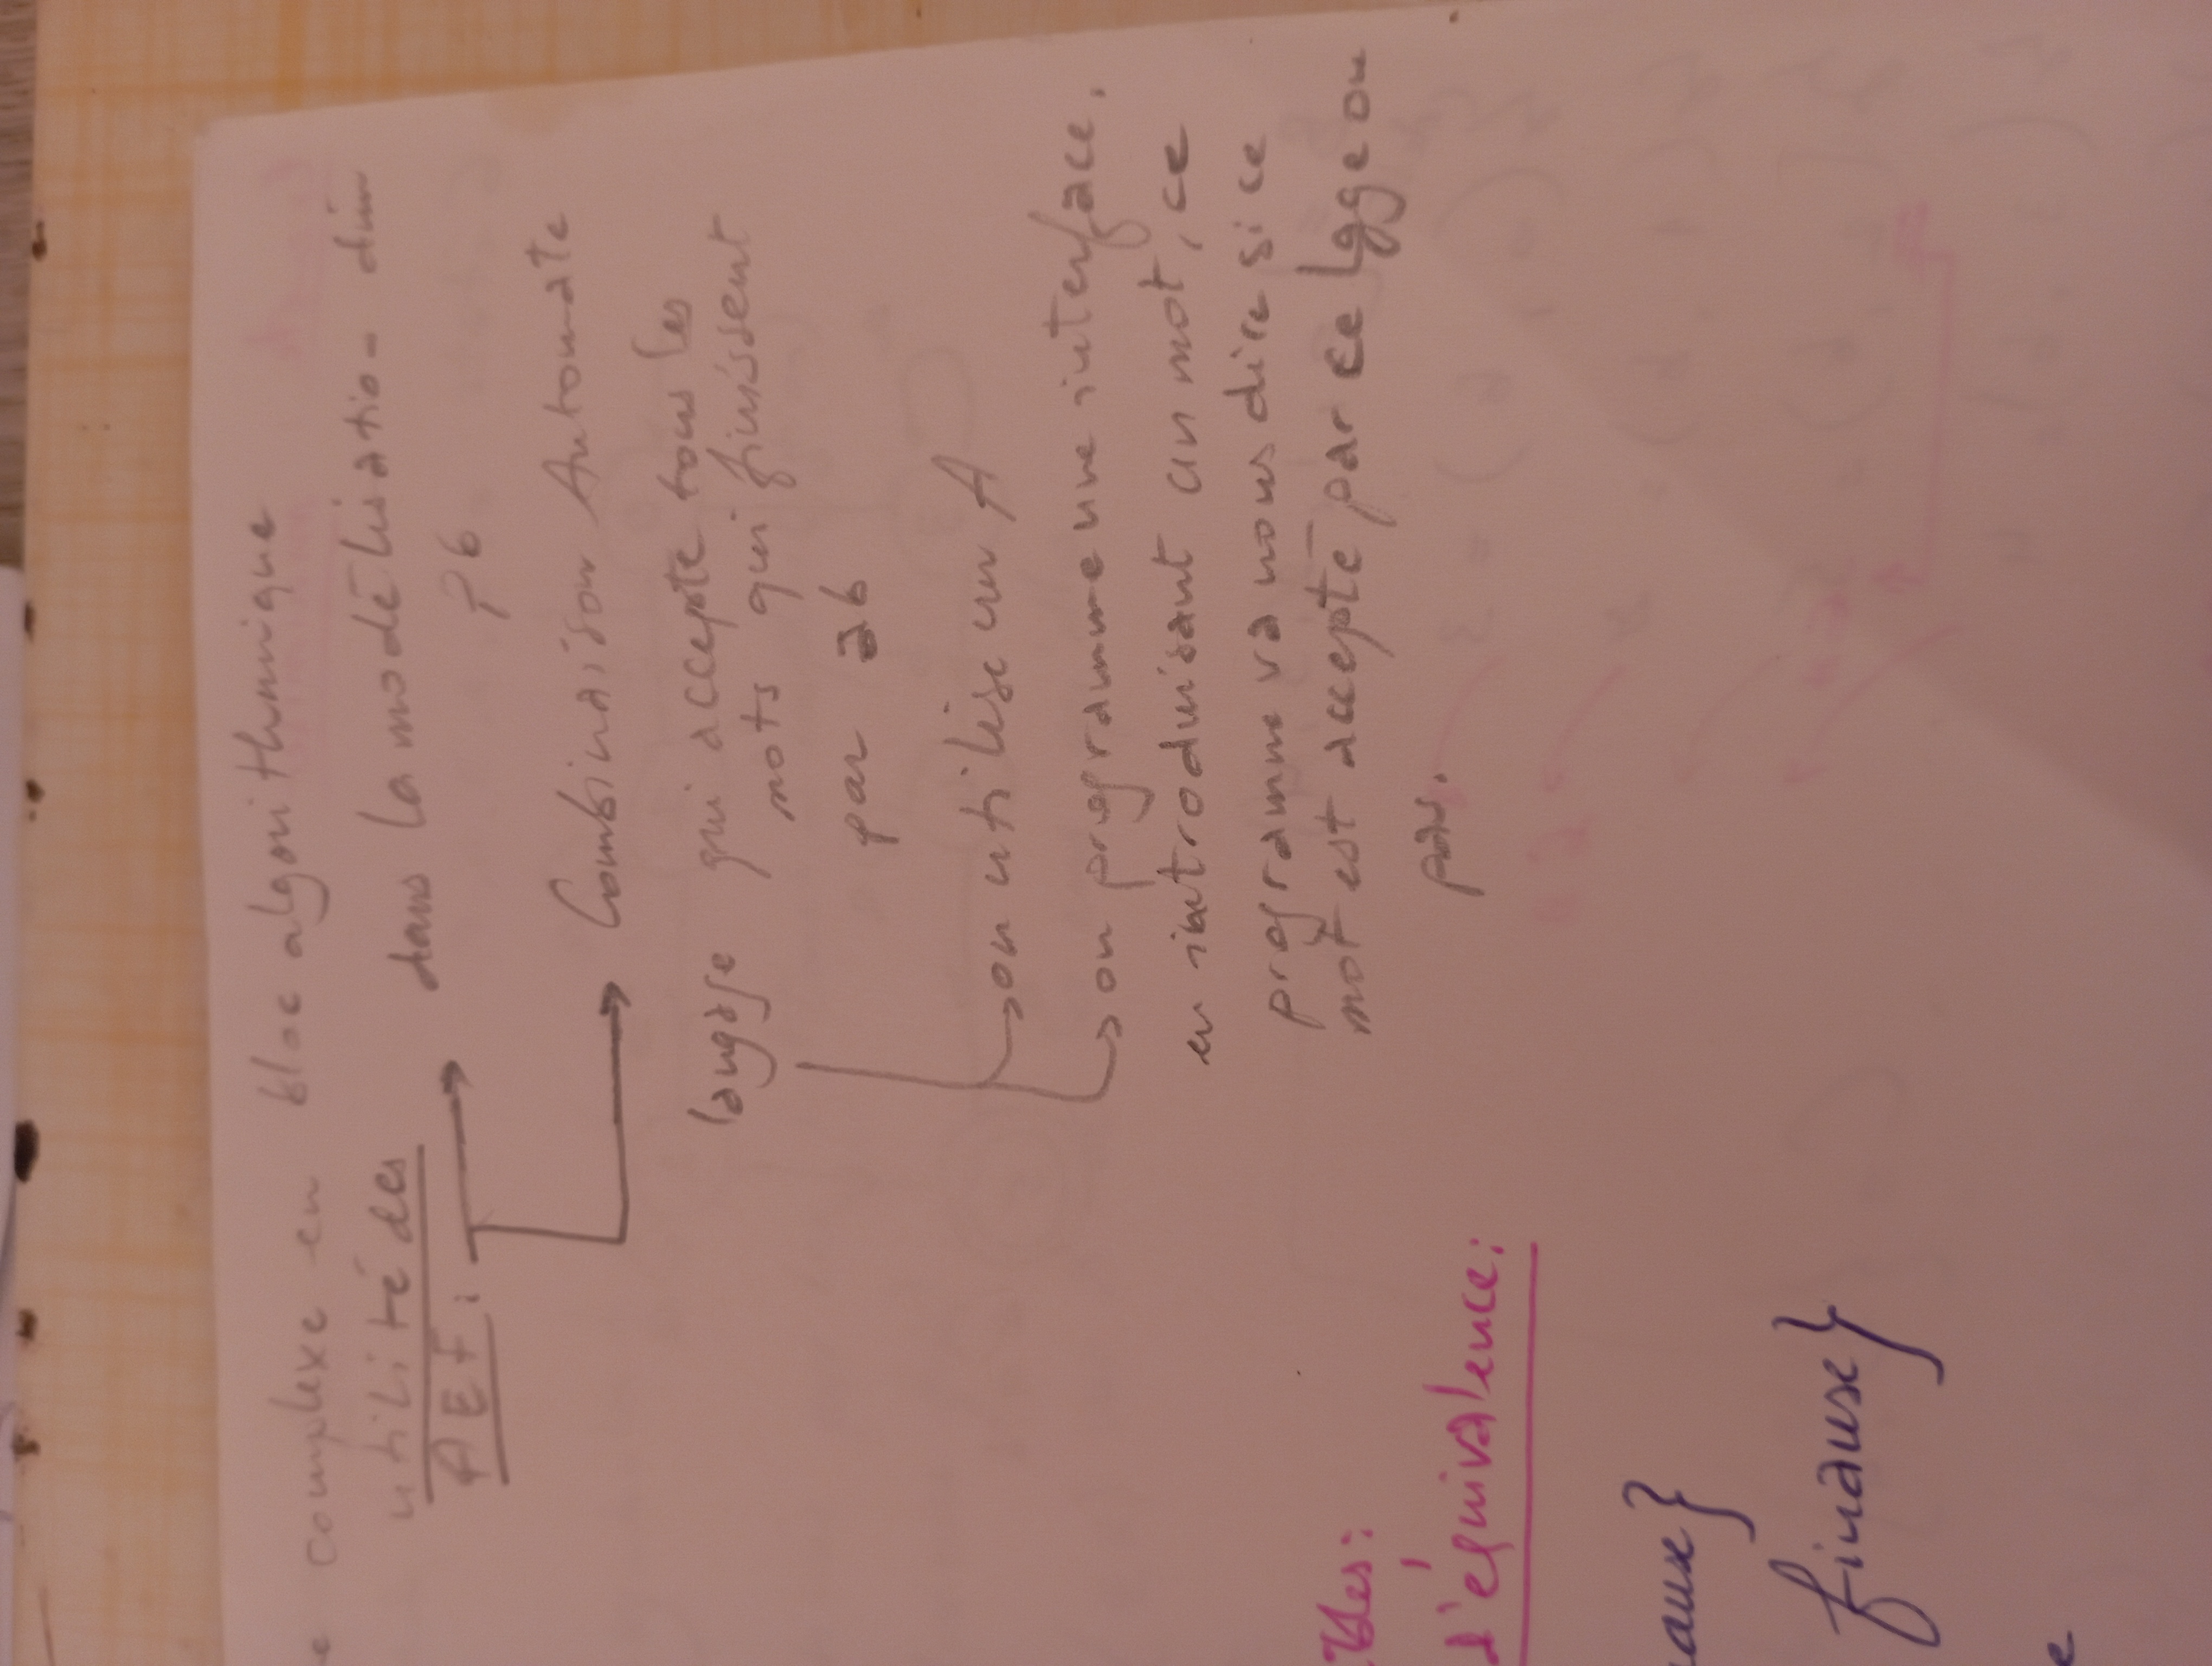 complexe en bloc algorithmique
utilité des
AEF:
dans la modélisation d'un
pb
Combinaison Automate
langage qui accepte tous les
mots qui finissent
par ab
on utilise un A
on programme une interface.
en introduisant un mot, ce
programme va nous dire si ce
mot est accepté par ce lgge ou
pas.
d'équivalence:
finaux}